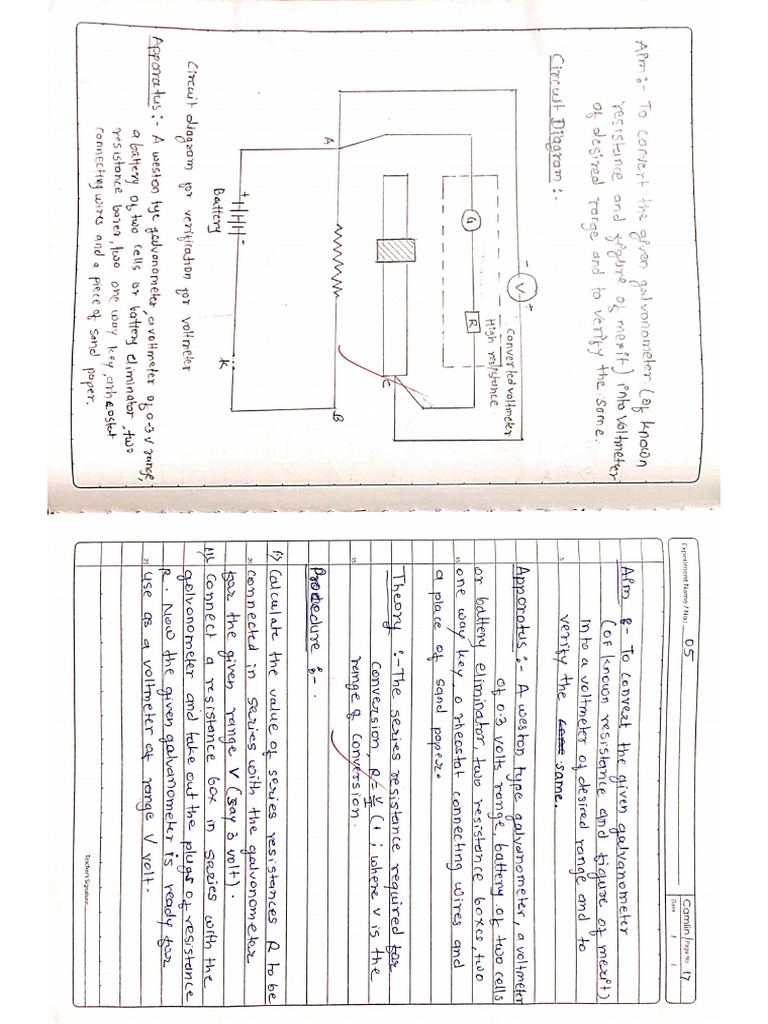 Aim:- To convert the given galvonometer (of known
resistance and figure of merit) into voltmeter
of desired range and to verify the same.
Circuit Diagram :-
Converted voltmeter
High resistance
- V +
G
R
C
A
B
+ -
Battery
K
Circuit diagram for verification for voltmeter
Apporatus:- A weston tye galvonometer, a voltmeter of 0-3 v range,
a battery of two cells or battery eliminator, two
resistance boxes, two one way key, a rheostat
connecting wires and a piece of sand paper.
Experiment Name / No.: 05
Camlin Page No. 17
Date / /
Aim :- To convert the given galvanometer
(of known resistance and figure of merit)
into a voltmeter of desired range and to
verify the same.
Apporatus :- A weston type galvanometer, a voltmeter
of 0-3 volts range, battery of two cells
or battery eliminator, two resistance boxes, two
one way key, a rheostat connecting wires and
a place of sand paper.
Theory :- The series resistance required for
conversion, R = V/I (1 ; where V is the
range of conversion.
Procedure :- .
i) Calculate the value of series resistances R to be
connected in series with the galvonometer
for the given range V (say 3 volt).
Connect a resistance box in series with the
galvonometer and take out the plugs of resistance
R. Now the given galvanometer is ready for
use as a voltmeter of range V volt.
Teacher's Signature